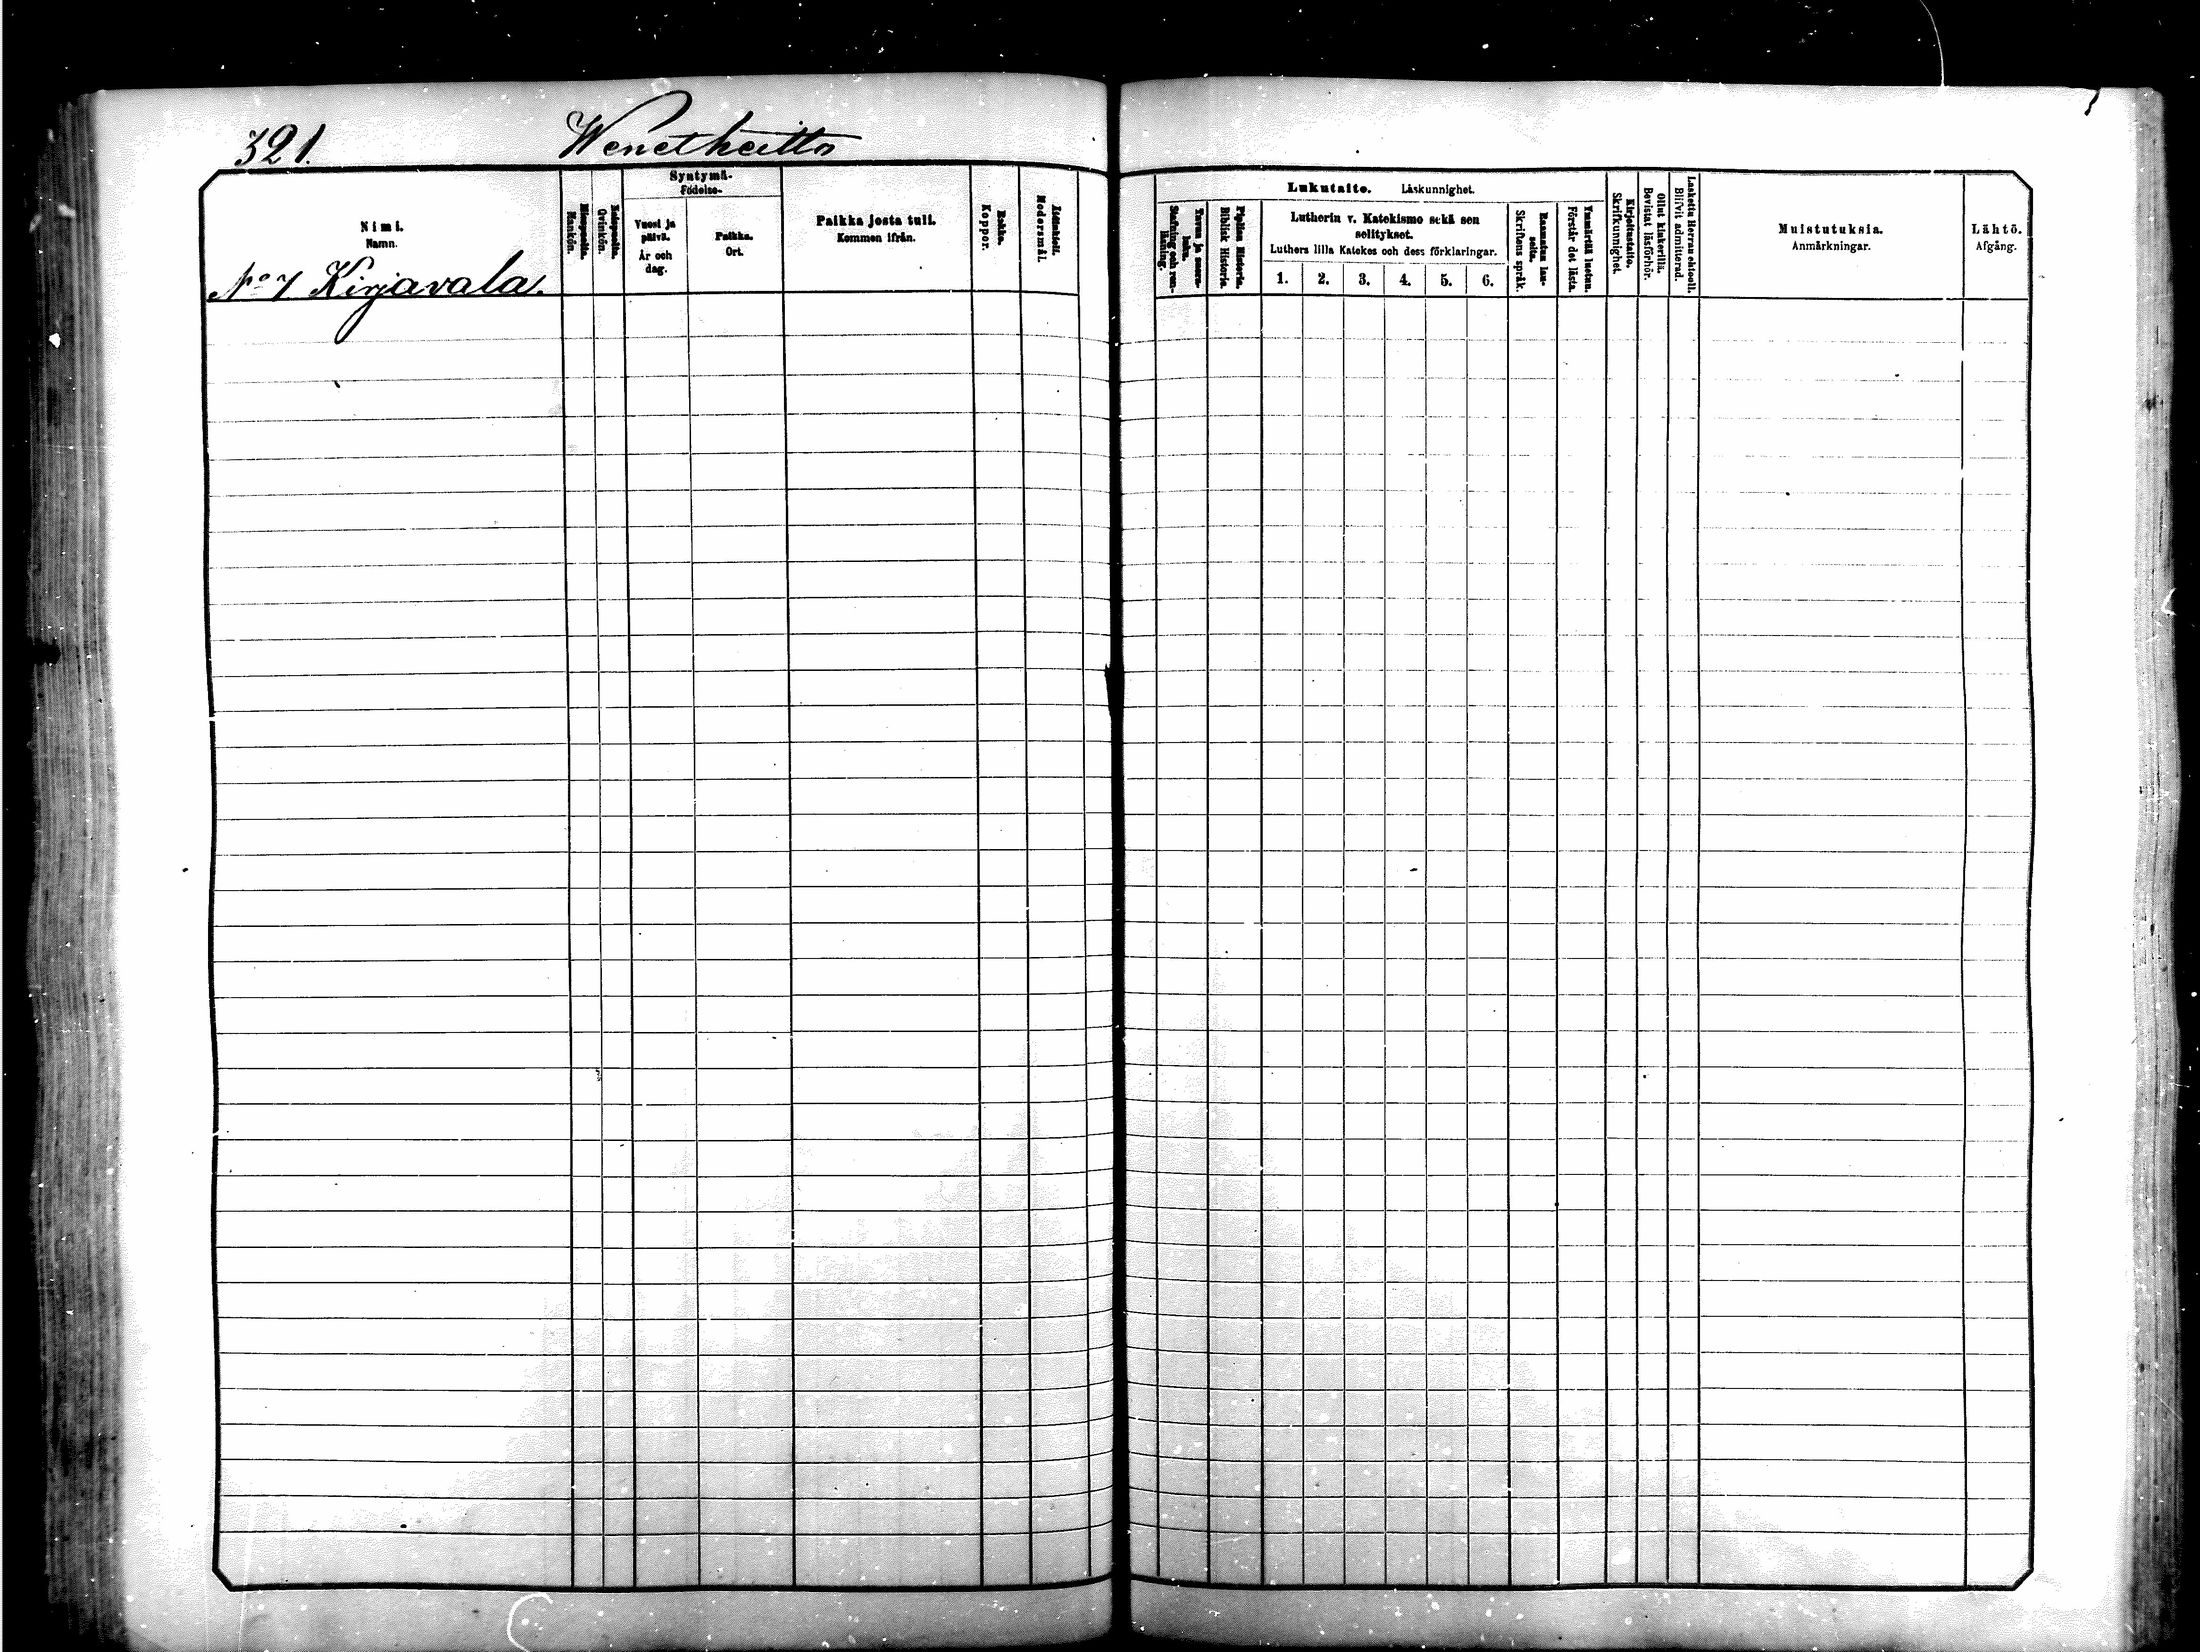 321.
Wenetkeitto
Nimi.
Namn.
Miespuolia.
Mankön.
Vaimopuolia.
Qvinkön.
Syntymä-
Födelse-
Vuosi ja
päivä.
År och
dag.
Paikka.
Ort.
Paikka josta tuli.
Kommen ifrån.
Rokko.
Koppor.
Äidinkieli.
Modersmål.
No 7 Kirjavala.
Lukutaito. Läskunnighet.
Tavuu ja suora-
luku.
Stafning och ren-
läsning.
Piplian Historia.
Biblisk Historia.
Lutherin v. Katekismo sekä sen
selitykset.
Luthers lilla Katekes och dess förklaringar.
1. 2. 3. 4. 5. 6.
Raamatun lau-
seita.
Skriftens språk.
Ymmärtää luetun.
Förstår det lästa.
Kirjoitustaito.
Skrifkunnighet.
Ollut kinkerillä.
Bevistat läsförhör.
Laskettu Herran ehtooll.
Blifvit admitterad.
Muistutuksia.
Anmärkningar.
Lähtö.
Afgång.